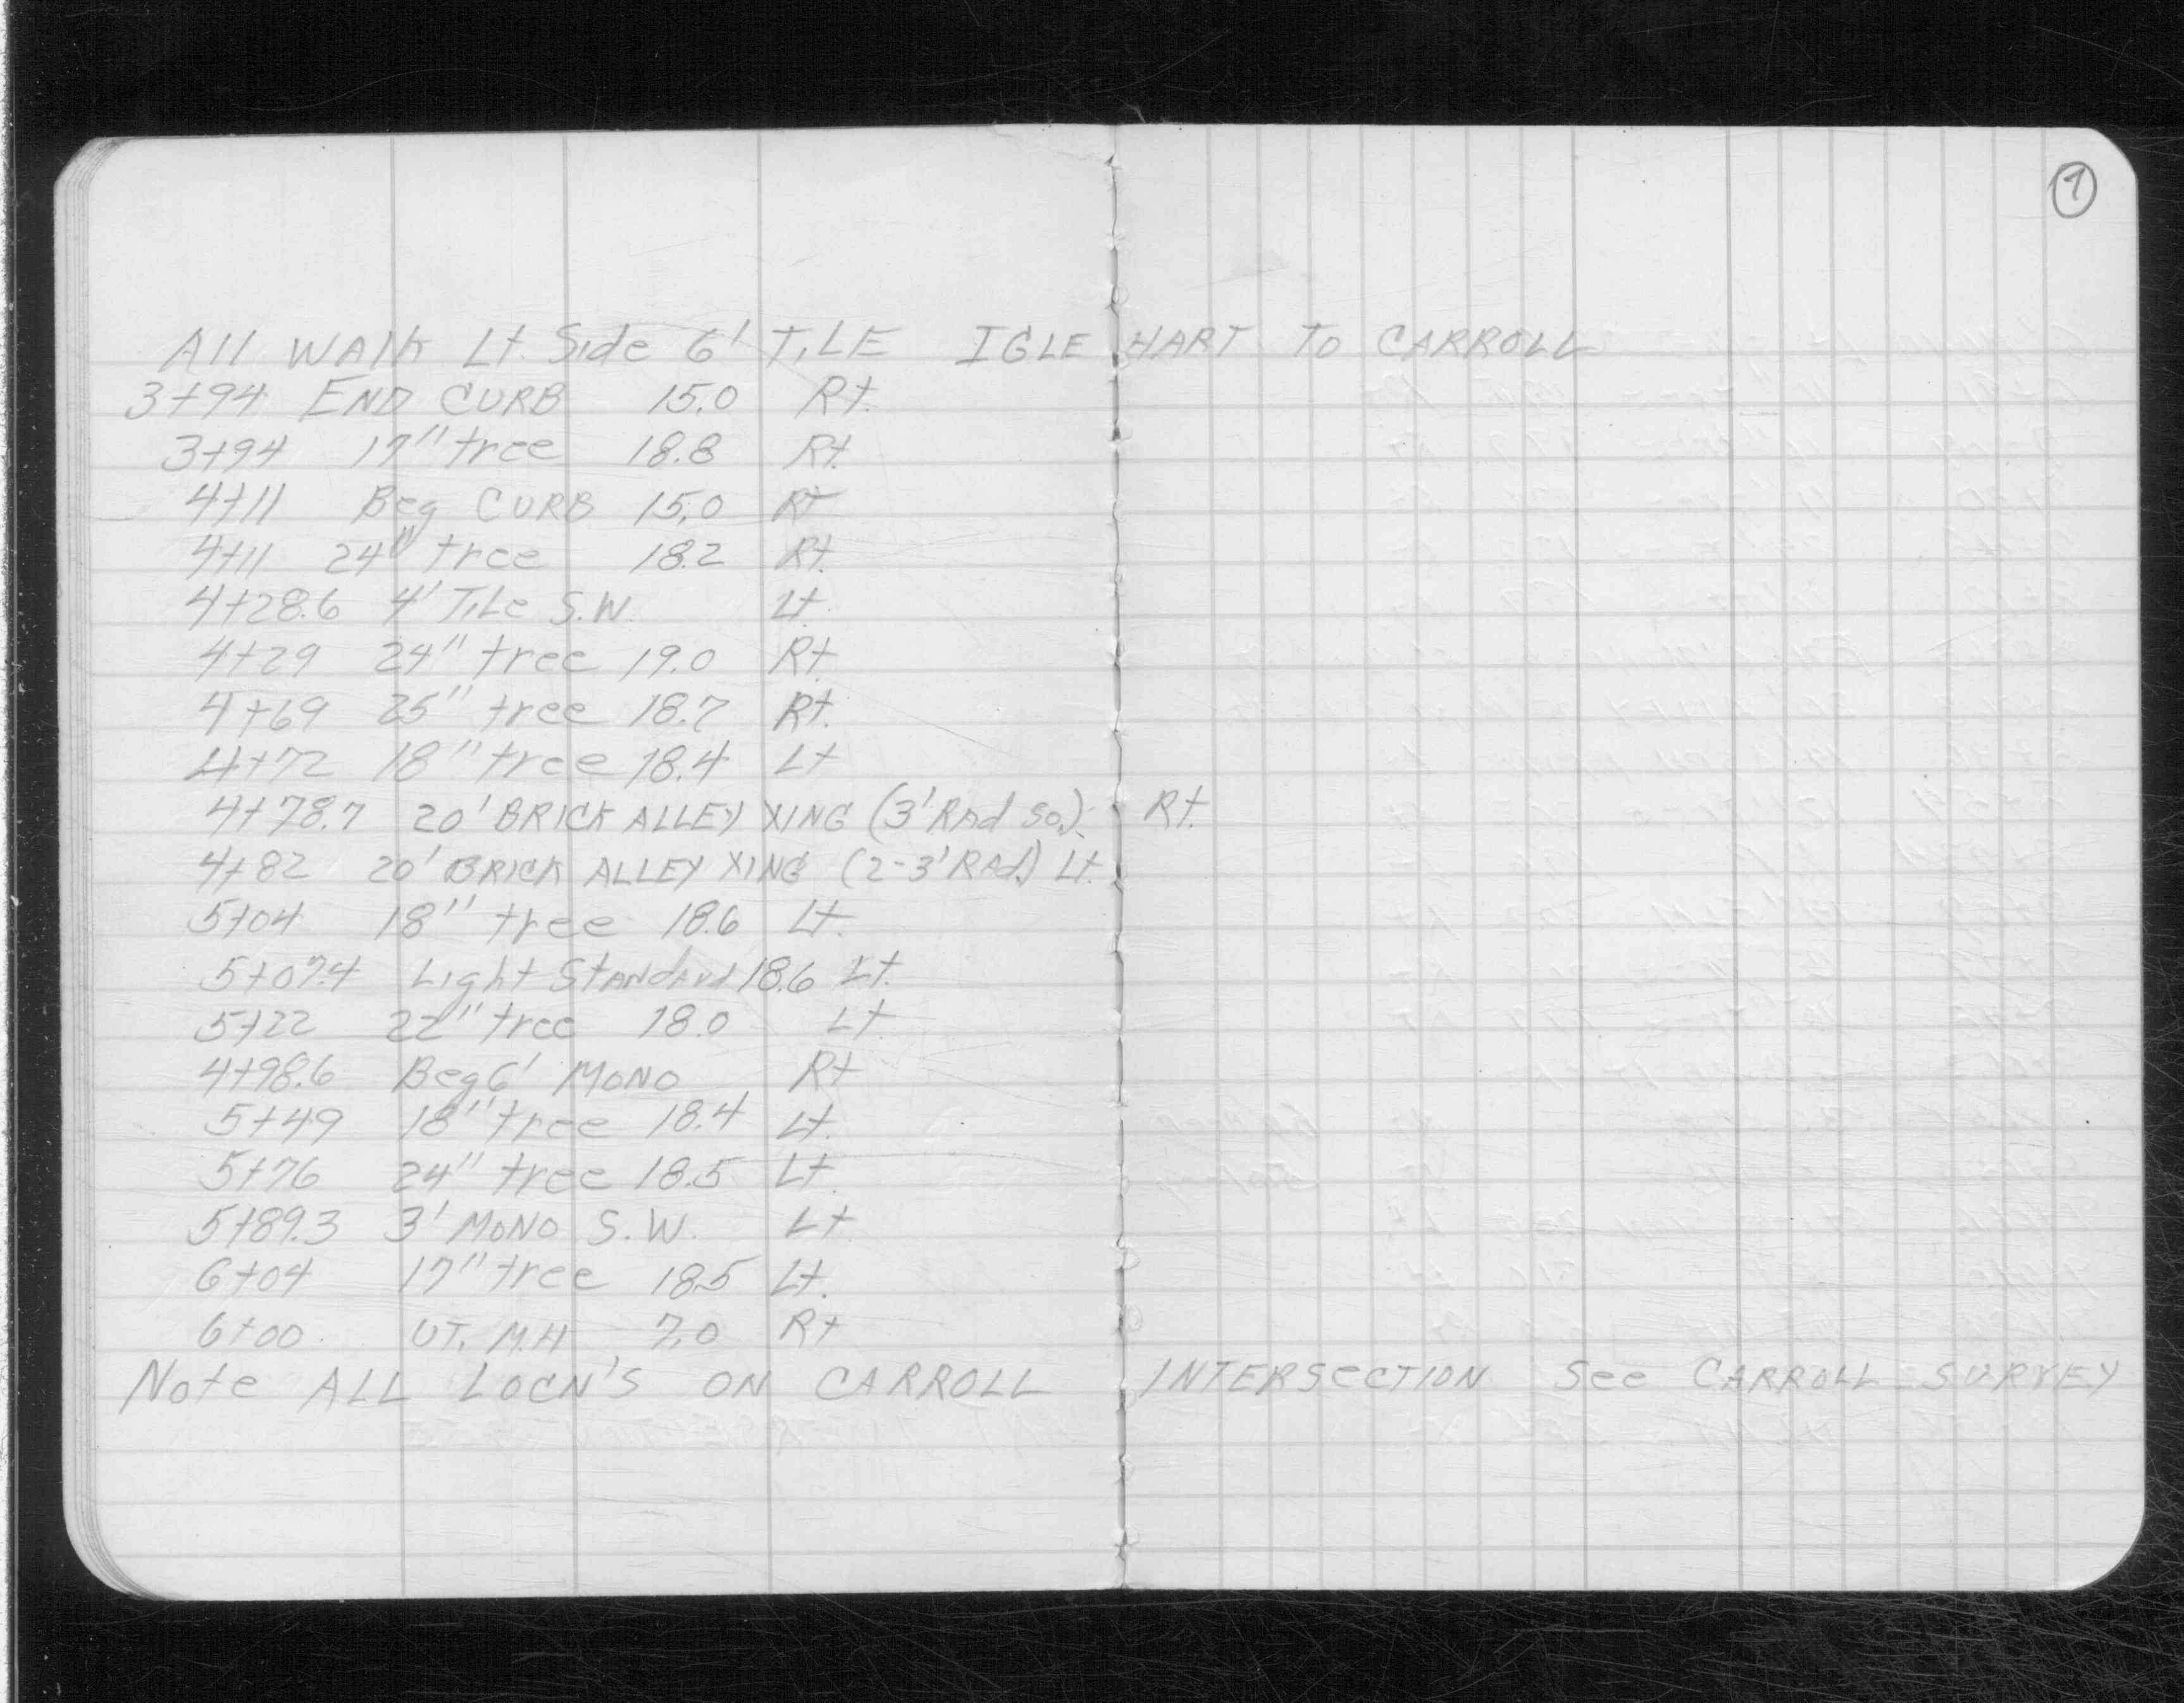 7
All WALK Lt. Side 6' TILE IGLEHART To CARROLL
3+94 END CURB 15.0 Rt.
3+94 17" tree 18.8 Rt.
4+11 Beg CURB 15.0 Rt
4+11 24" tree 18.2 Rt.
4+28.6 4' TiLe S.W. Lt.
4+29 24" tree 19.0 Rt.
4+69 25" tree 18.7 Rt.
4+72 18" tree 18.4 Lt
4+78.7 20' BRICK ALLEY XING (3' RAd So.) Rt.
4+82 20' BRICK ALLEY XING (2-3' RAd.) Lt.
5+04 18" tree 18.6 Lt.
5+07.4 Light StANdArd 18.6 Lt.
5+22 22" tree 18.0 Lt
4+98.6 Beg 6' MONO Rt
5+49 18" tree 18.4 Lt.
5+76 24" tree 18.5 Lt.
5+89.3 3' MONO S.W. Lt
6+04 17" tree 18.5 Lt.
6+00 UT. M.H 7.0 Rt
Note ALL LOCN'S ON CARROLL INTERSeCTION See CARROLL SURVEY